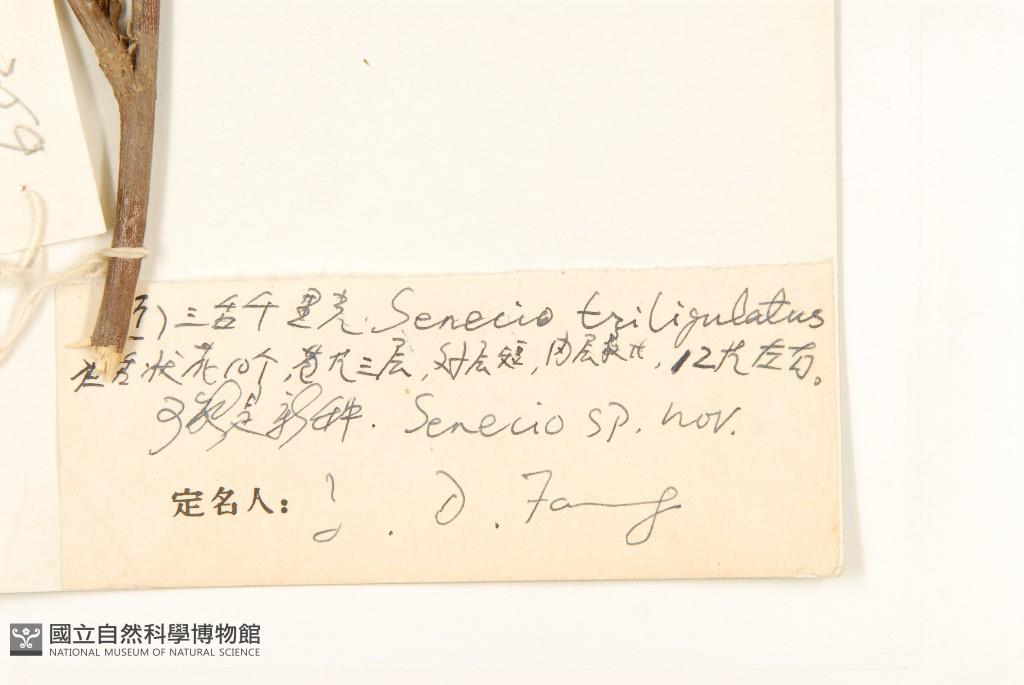 三舌千里光. Senecio triligulatus
舌状花10个, 苞片三层, 外层短, 内层较长, 12片左右。
可能是新种. Senecio sp. nov.
定名人: D. Fang
國立自然科學博物館
NATIONAL MUSEUM OF NATURAL SCIENCE